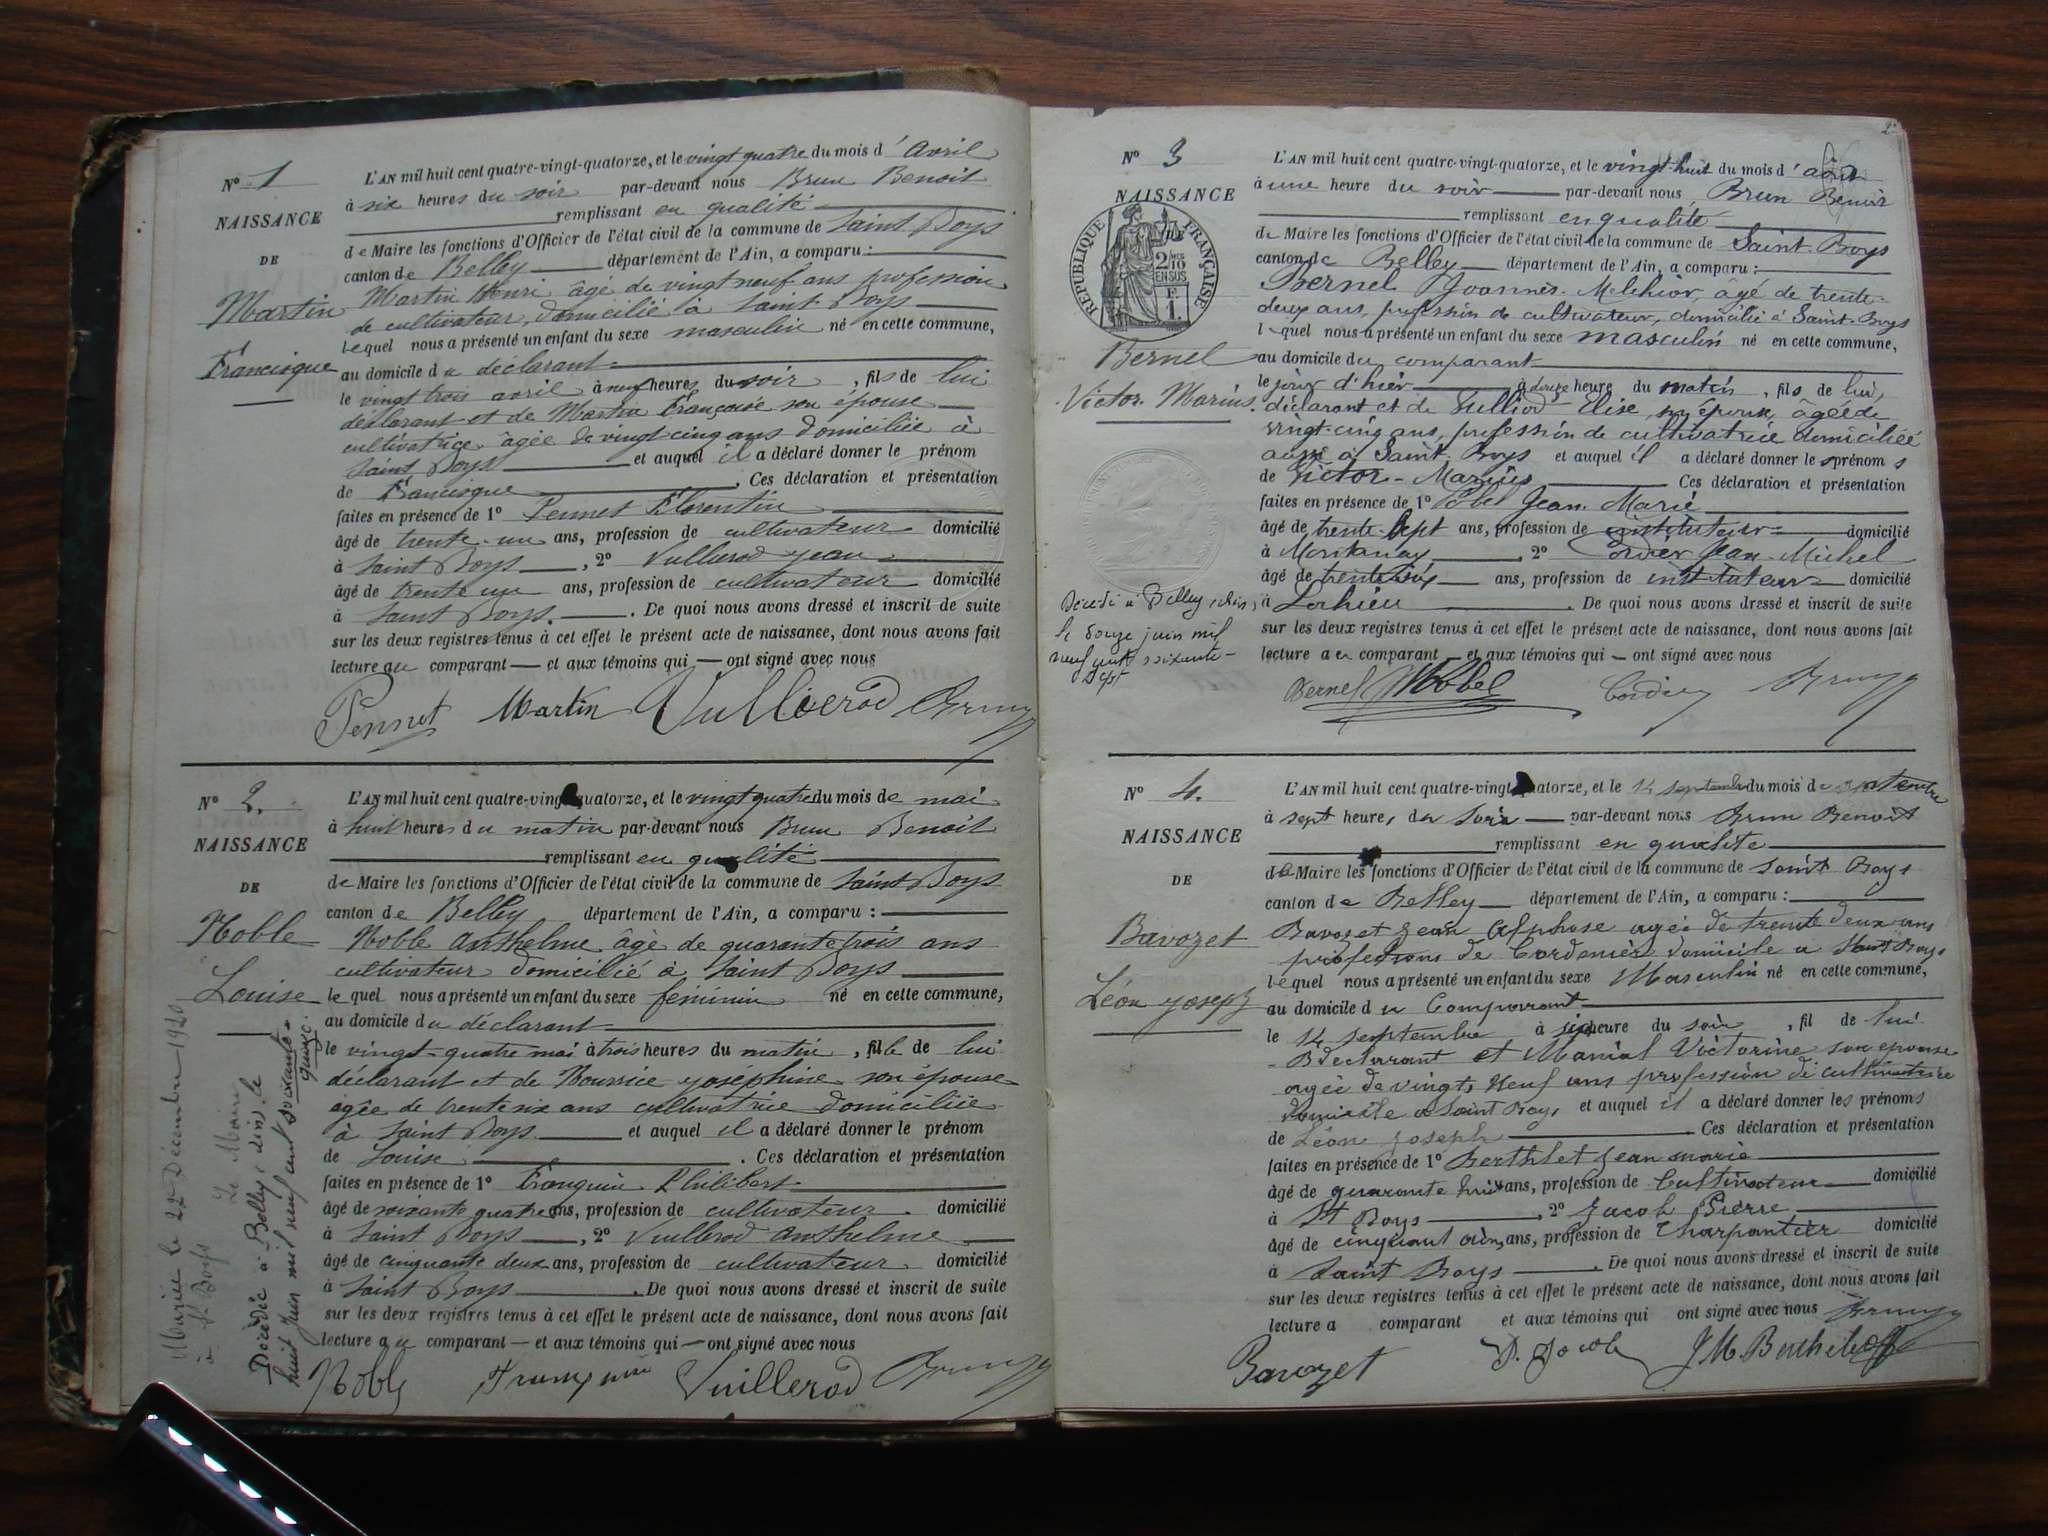 N° 1
NAISSANCE
DE
Martin
Francisque
L'AN mil huit cent quatre-vingt-quatorze, et le vingt quatre du mois d'Avril
à six heures du soir par-devant nous Brun Benoit
remplissant en qualité
de Maire les fonctions d'Officier de l'état civil de la commune de Saint Boys
canton de Belley département de l'Ain, a comparu :
Martin Henri âgé de vingt neuf ans profession
de cultivateur, domicilié à Saint Boys
lequel nous a présenté un enfant du sexe masculin né en cette commune,
au domicile du déclarant
le vingt trois avril à neuf heures du soir, fils de lui
déclarant et de Martin Françoise son épouse
cultivatrice âgée de vingt cinq ans domiciliée à
Saint Boys et auquel il a déclaré donner le prénom
de Francisque. Ces déclaration et présentation
faites en présence de 1° Pennet Florentin
âgé de trente-un ans, profession de cultivateur domicilié
à Saint Boys, 2° Vullierod Jean
âgé de trente un ans, profession de cultivateur domicilié
à Saint Boys. De quoi nous avons dressé et inscrit de suite
sur les deux registres tenus à cet effet le présent acte de naissance, dont nous avons fait
lecture au comparant et aux témoins qui ont signé avec nous
Pennet Martin Vullierod Brun
N° 2.
NAISSANCE
DE
Noble
Louise
Marié le 22 Décembre 1920
à St Boys
Le Maire
Décédée à Belley (Ain) le
huit Juin mil neuf cent soixante-
quinze.
L'AN mil huit cent quatre-vingt quatorze, et le vingt quatre du mois de mai
à huit heures du matin par-devant nous Brun Benoit
remplissant en qualité
de Maire les fonctions d'Officier de l'état civil de la commune de Saint Boys
canton de Belley département de l'Ain, a comparu :
Noble Anthelme âgé de quarante trois ans
cultivateur domicilié à Saint Boys
lequel nous a présenté un enfant du sexe féminin né en cette commune,
au domicile du déclarant
le vingt-quatre mai à trois heures du matin, fille de lui
déclarant et de Joséphine son épouse
âgée de trente six ans cultivatrice domiciliée
à Saint Boys et auquel il a déclaré donner le prénom
de Louise. Ces déclaration et présentation
faites en présence de 1° Franquin Philibert
âgé de soixante quatre ans, profession de cultivateur domicilié
à Saint Boys, 2° Vuillerod Anthelme
âgé de cinquante deux ans, profession de cultivateur domicilié
à Saint Boys. De quoi nous avons dressé et inscrit de suite
sur les deux registres tenus à cet effet le présent acte de naissance, dont nous avons fait
lecture au comparant et aux témoins qui ont signé avec nous
Noble Franquin Vuillerod Brun
2
N° 3
NAISSANCE
RÉPUBLIQUE FRANÇAISE
2/10 EN SUS
1
Bernel
Victor Marius
Décédé à Belley (Ain)
le douze juin mil
neuf cent soixante-
sept
L'AN mil huit cent quatre-vingt-quatorze, et le vingt-huit du mois d'août
à une heure du soir par-devant nous Brun Benoit
remplissant en qualité
de Maire les fonctions d'Officier de l'état civil de la commune de Saint-Boys
canton de Belley département de l'Ain, a comparu :
Bernel Joannès-Melchior, âgé de trente-
deux ans, profession de cultivateur, domicilié à Saint-Boys
lequel nous a présenté un enfant du sexe masculin né en cette commune,
au domicile du comparant
le jour d'hier à douze heure du matin, fils de lui,
déclarant et de Elise, son épouse, âgée de
vingt-cinq ans, profession de cultivatrice domiciliée
aussi à Saint-Boys et auquel il a déclaré donner les prénoms
de Victor-Marius Ces déclaration et présentation
faites en présence de 1° Jean Marie
âgé de trente-sept ans, profession de instituteur domicilié
à Montanay, 2° Cordier Jean-Michel
âgé de trente six ans, profession de instituteur domicilié
à Lochieu. De quoi nous avons dressé et inscrit de suite
sur les deux registres tenus à cet effet le présent acte de naissance, dont nous avons fait
lecture au comparant et aux témoins qui ont signé avec nous
Bernel Cordier Brun
N° 4.
NAISSANCE
DE
Bavozet
Léon Joseph
L'AN mil huit cent quatre-vingt-quatorze, et le 14 septembre du mois de septembre
à sept heures du soir par-devant nous Brun Benoit
remplissant en qualité
de Maire les fonctions d'Officier de l'état civil de la commune de Saint Boys
canton de Belley département de l'Ain, a comparu :
Bavozet Jean Alphose agée de trente deux ans
profesions de Cordonier domicile a Saint Boys
lequel nous a présenté un enfant du sexe Masculin né en cette commune,
au domicile du Comparant
le 14 septembre à six heure du soir, fil de lui
declarant et Victorine son epouse
agée de vingt Neuf ans profession de cultivatrice
domicile a Saint Boys et auquel il a déclaré donner les prénoms
de Léon Joseph Ces déclaration et présentation
faites en présence de 1° Berthlet Jean marie
âgé de quarante huit ans, profession de Cultivateur domicilié
à St Boys, 2° Jacob Pierre
âgé de cinquant ans, profession de Charpantier domicilié
à Saint Boys. De quoi nous avons dressé et inscrit de suite
sur les deux registres tenus à cet effet le présent acte de naissance, dont nous avons fait
lecture a comparant et aux témoins qui ont signé avec nous Brun
Bavozet P. Jacob J M Berthelet